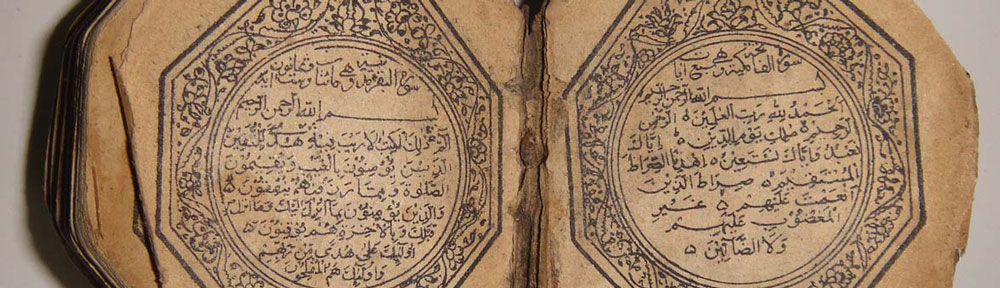 سورة الفاتحة وهي سبع آيات
بسم الله الرحمن الرحيم
الحمد لله رب العلمين ه الرحمن
الرحيم ه ملك يوم الدين ه اياك
نعبد واياك نستعين ه اهدنا الصراط
المستقيم ه صراط الذين
انعمت عليهم ه غير
المغضوب عليهم
ولا الضالين ه
سورة البقرة وهي وثمانون وست آية
بسم الله الرحمن الرحيم
الم ذلك الكتب لا ريب فيه هدى للمتقين
الذين يؤمنون بالغيب ويقيمون
الصلوة ومما رزقنهم ينفقون ه
والذين يؤمنون بما انزل اليك وما انزل
قبلك وبالاخرة هم يوقنون ه
اولئك على هدى من ربهم
واولئك هم المفلحون